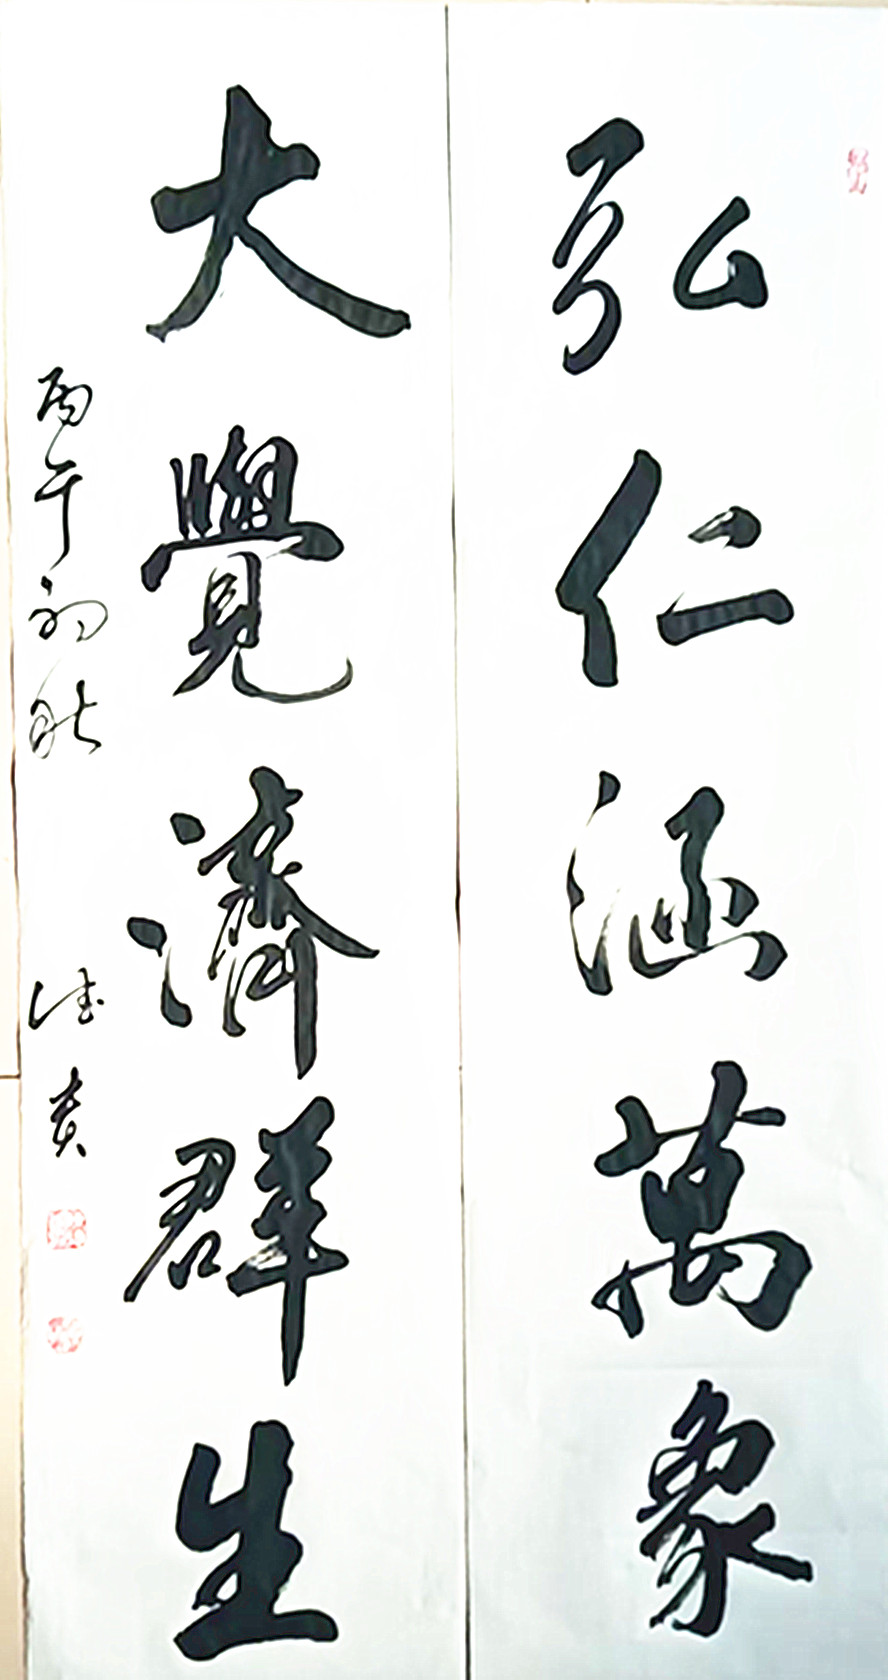 弘仁涵萬象
大覺濟群生
丙午初秋